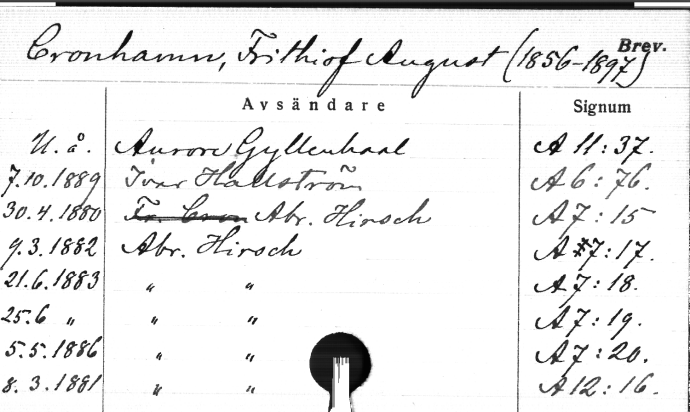 Cronhamn, Frithiof August (1856-1897) Brev.
Avsändare Signum
U. å. Aurore Gyllenhaal A 11:37.
7.10.1889 Ivar Hallström A 6:76.
30.4.1880 Fr. Cron Abr. Hirsch A 7:15
9.3.1882 Abr. Hirsch A 7:17.
21.6.1883 " " A 7:18.
25.6 " " " A 7:19.
5.5.1886 " " A 7:20.
8.3.1881 " " A 12:16.